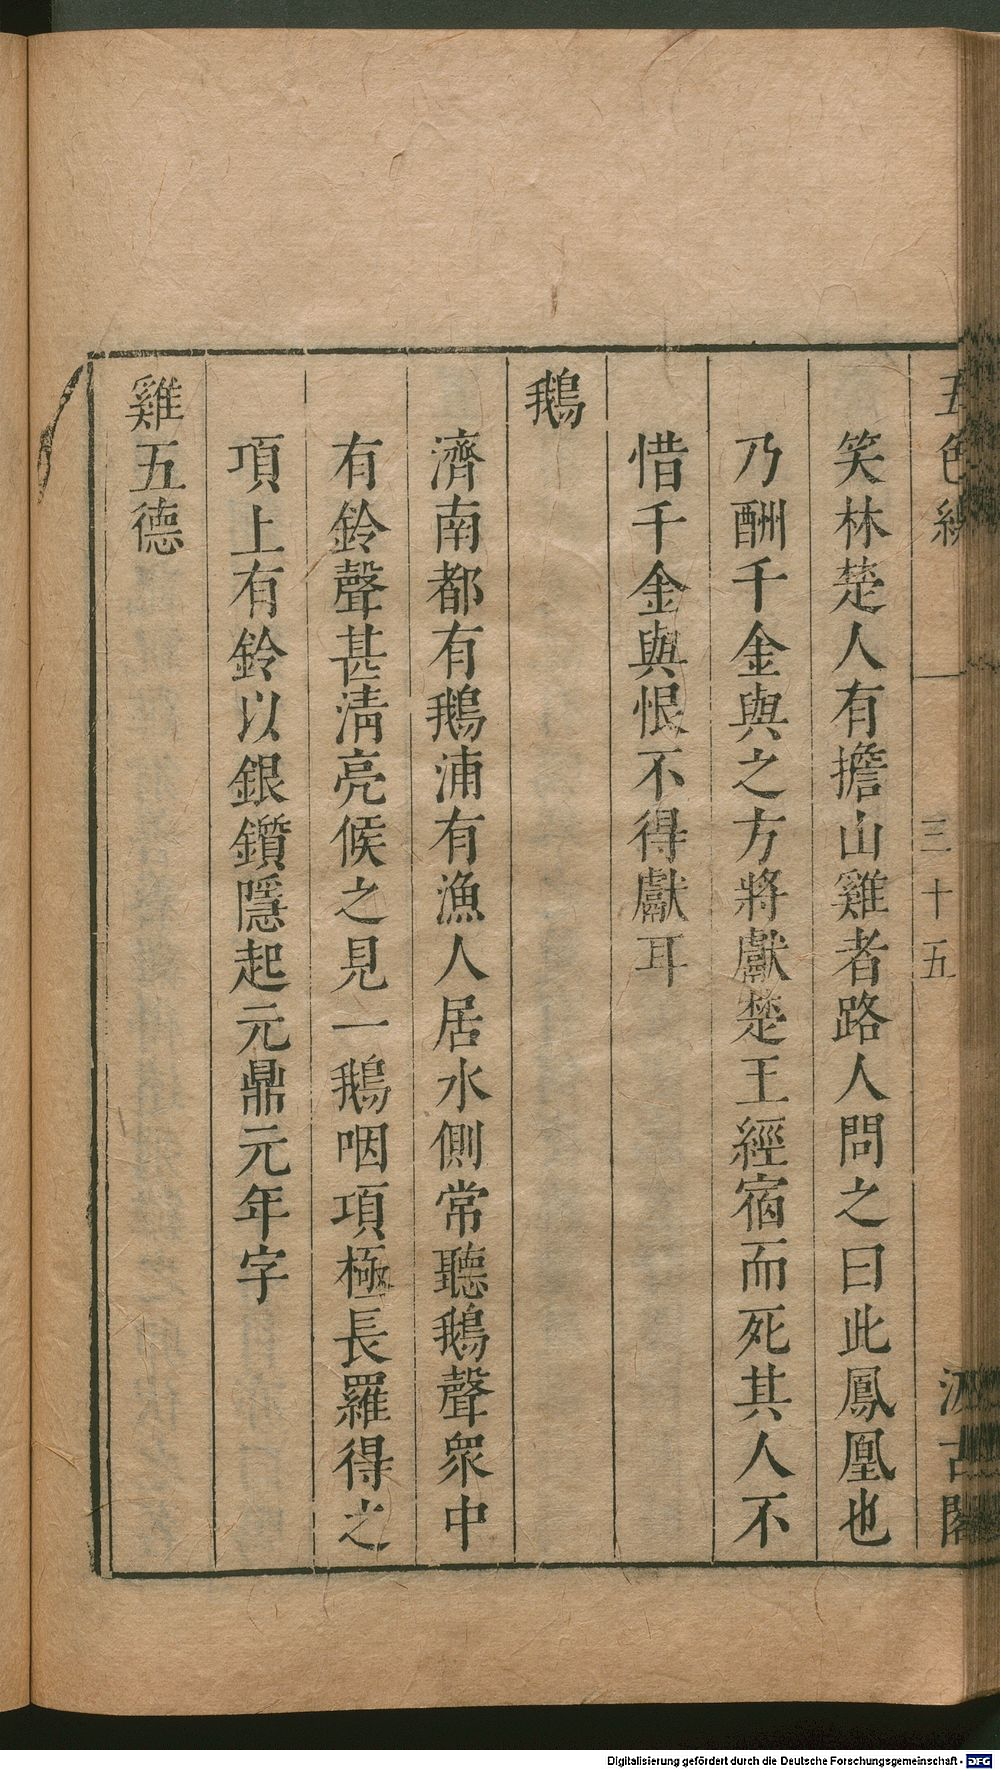 五色線 一 三十五 汲古閣
笑林楚人有擔山雞者路人問之曰此鳳凰也
乃酬千金與之方將獻楚王經宿而死其人不
惜千金與恨不得獻耳
鵝
濟南都有鵝浦有漁人居水側常聽鵝聲衆中
有鈴聲甚淸亮候之見一鵝咽項極長羅得之
項上有鈴以銀鑽隱起元鼎元年字
雞五德
Digitalisierung gefördert durch die Deutsche Forschungsgemeinschaft - DFG